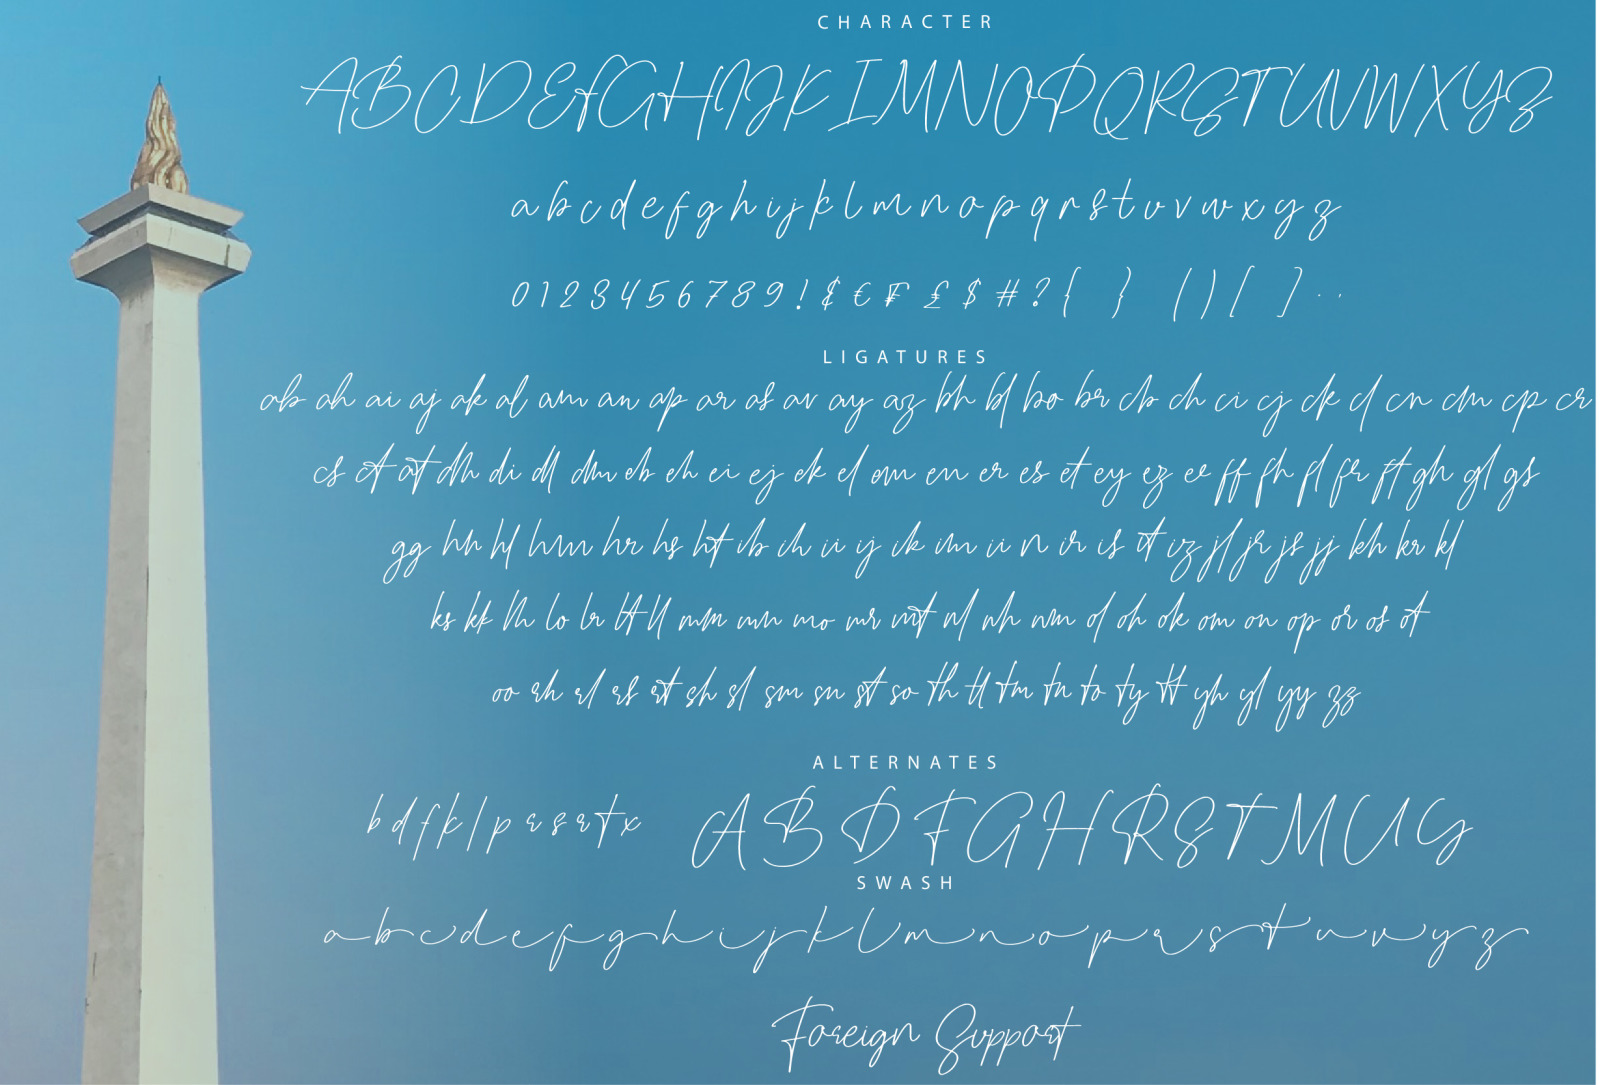 CHARACTER
ABCDEFGHIJKLMNOPQRSTUVWXYZ
abcdefghijklmnopqrstuvwxyz
0123456789!$€₣£$#?{ } ()[ ]..
LIGATURES
ab ah ai aj ak al am an ap ar as av ay az bh bl bo br cb ch ci cj ck cl cn cm cp cr
cs ct at dh di dl dm eb eh ei ej ek el em en er es et ey ez ee ff fh fl fr ft gh gl gs
gg hn hl hm hr hs ht ib ih ii ij ik im ii n ir is it iz jl jr js jj kh kr kl
ks kk lh lo lr lt ll mm mn mo mr mt nl nh nm ol oh ok om on op or os ot
oo rh rl rs rt sh sl sm sn st so th tl tm tn to ty tt yh yl yy zz
ALTERNATES
bdfklprsrtx ABDFGHRSTMUG
SWASH
abcdefghijklmnoprstuvyz
Foreign Support